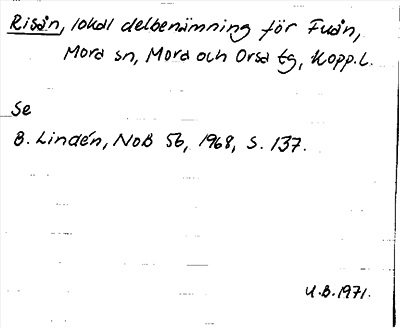 Risån, lokal delbenämning för Fuån,
Mora sn, Mora och Orsa tg, Kopp.l.
Se
B. Lindén, NoB 56, 1968, s. 137.
U.B.1971.